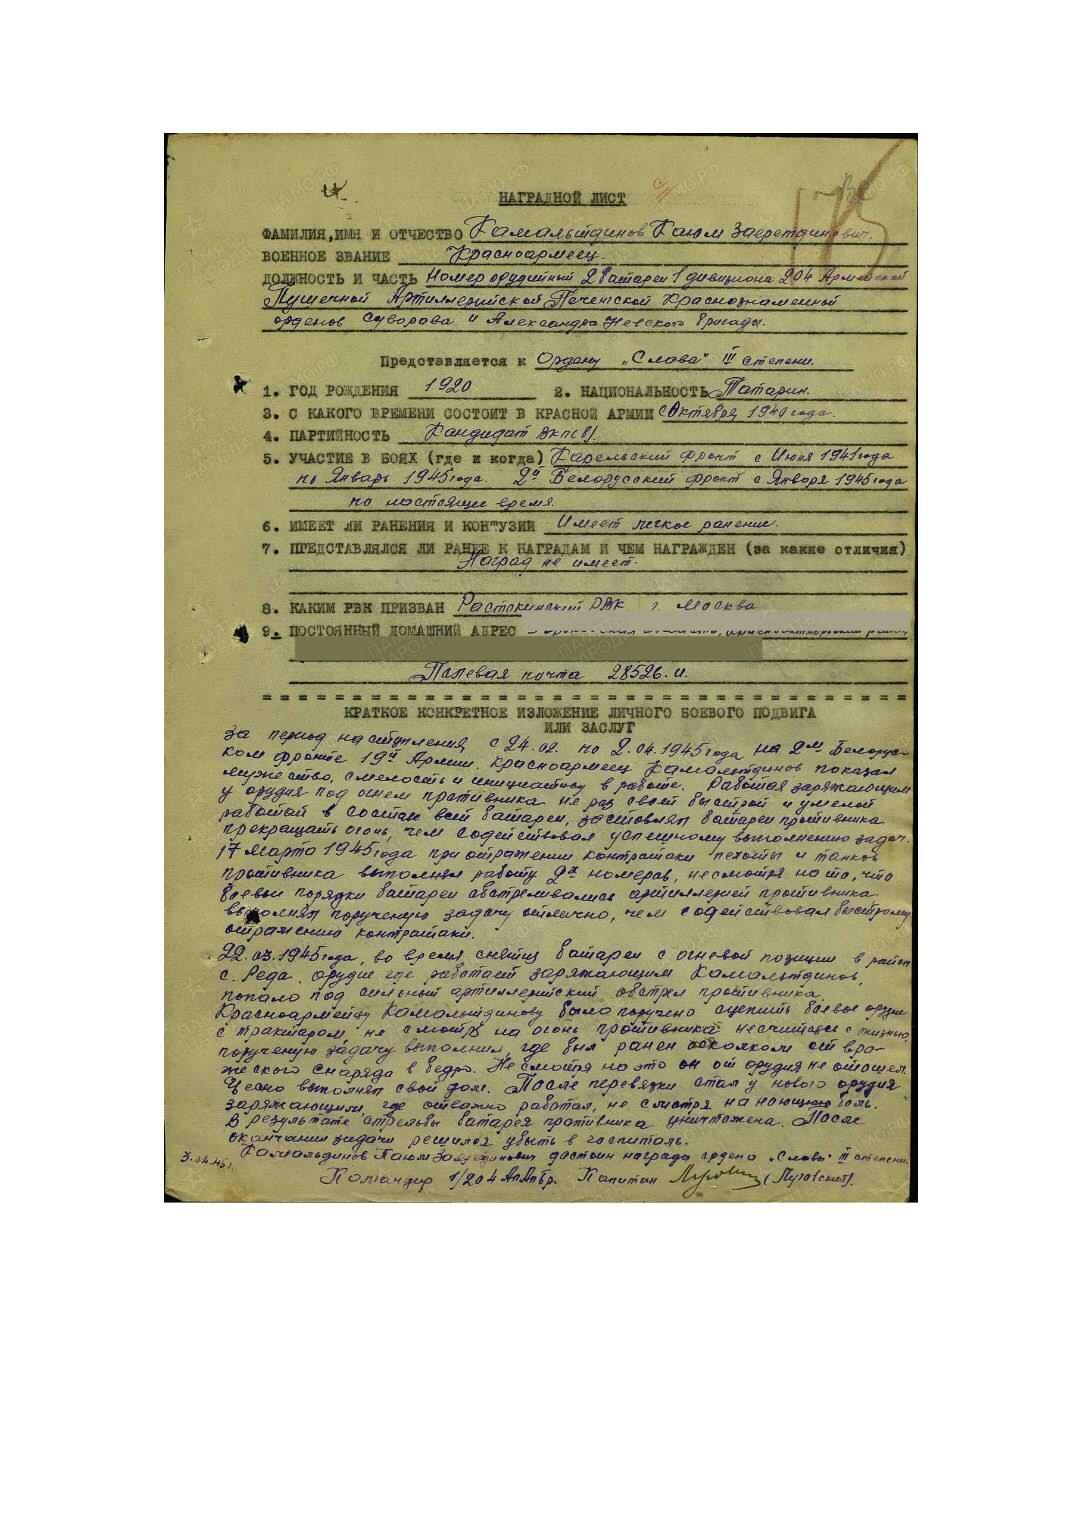 НАГРАДНОЙ ЛИСТ
ФАМИЛИЯ, ИМЯ И ОТЧЕСТВО Камальтдинов Каюм Заеретдинович.
ВОЕННОЕ ЗВАНИЕ Красноармеец.
ДОЛЖНОСТЬ И ЧАСТЬ Номер орудийный 2 батареи 1 дивизиона 204 Армейской
Пушечной Артиллерийской Печенгской Краснознаменной
орденов Суворова и Александра Невского бригады.
Представляется к Ордену „Слава" III степени.
1. ГОД РОЖДЕНИЯ 1920 2. НАЦИОНАЛЬНОСТЬ Татарин.
3. С КАКОГО ВРЕМЕНИ СОСТОИТ В КРАСНОЙ АРМИИ с Октября 1940 года.
4. ПАРТИЙНОСТЬ Кандидат ВКП(в).
5. УЧАСТИЕ В БОЯХ (где и когда) Карельский фронт с Июня 1941 года
по Январь 1945 года. 2й Белорусский фронт с Января 1945 года
по настоящие время.
6. ИМЕЕТ ЛИ РАНЕНИЯ И КОНТУЗИИ Имеет легкое ранение.
7. ПРЕДСТАВЛЯЛСЯ ЛИ РАНЕЕ К НАГРАДАМ И ЧЕМ НАГРАЖДЕН (за какие отличия)
Наград не имеет.
8. КАКИМ РВК ПРИЗВАН Растокинский РВК г. Москва
9. ПОСТОЯННЫЙ ДОМАШНИЙ АДРЕС
Полевая почта 28526. и.
КРАТКОЕ КОНКРЕТНОЕ ИЗЛОЖЕНИЕ ЛИЧНОГО БОЕВОГО ПОДВИГА
ИЛИ ЗАСЛУГ
За период наступления с 24.02. по 2.04.1945 года на 2м Белорус-
ком фронте 19й Армии. красноармеец Камальтдинов показал
мужество, смелость и инициативу в работе. Работая заряжающим
у орудия под огнем противника не раз своей быстрой и умелой
работой в составе всей батареи, заставлял батареи противника
прекращать огонь, чем содействовал успешному выполнению задач.
17 Марта 1945 года при отражении контратаки пехоты и танков
противника выполнял работу 2х номеров, несмотря на то, что
боевые порядки батареи обстреливались артиллерией противника
выполнял порученую задачу отлично, чем содействовал быстрому
отражению контратаки.
22.03.1945 года, во время снятия батареи с огневой позиции в район
с. Реда, орудие где работает заряжающим Камальтдинов,
попало под сильный артиллерийский обстрел противника.
Красноармейцу Камальтдинову было поручено сцепить боевое орудие
с трактаром, не смотря на огонь противника несчитаясь с жизнью,
порученую задачу выполнил, где был ранен осколком от вра-
жеского снаряда в бедро. Не смотря на это он от орудия не отошел.
Чесно выполнял свой долг. После перевязки стал у нового орудия
заряжающим, где отважно работал, не смотря на ноющую боль.
В результате стрельбы батарея противника уничтожена. После
окончании задачи решился убыть в госпиталь.
Камальдинов Каюм достоин награда ордена „Слава" III степени.
3.04.45г.
Командир 1/204 АпАбр. Капитан (Луговской).